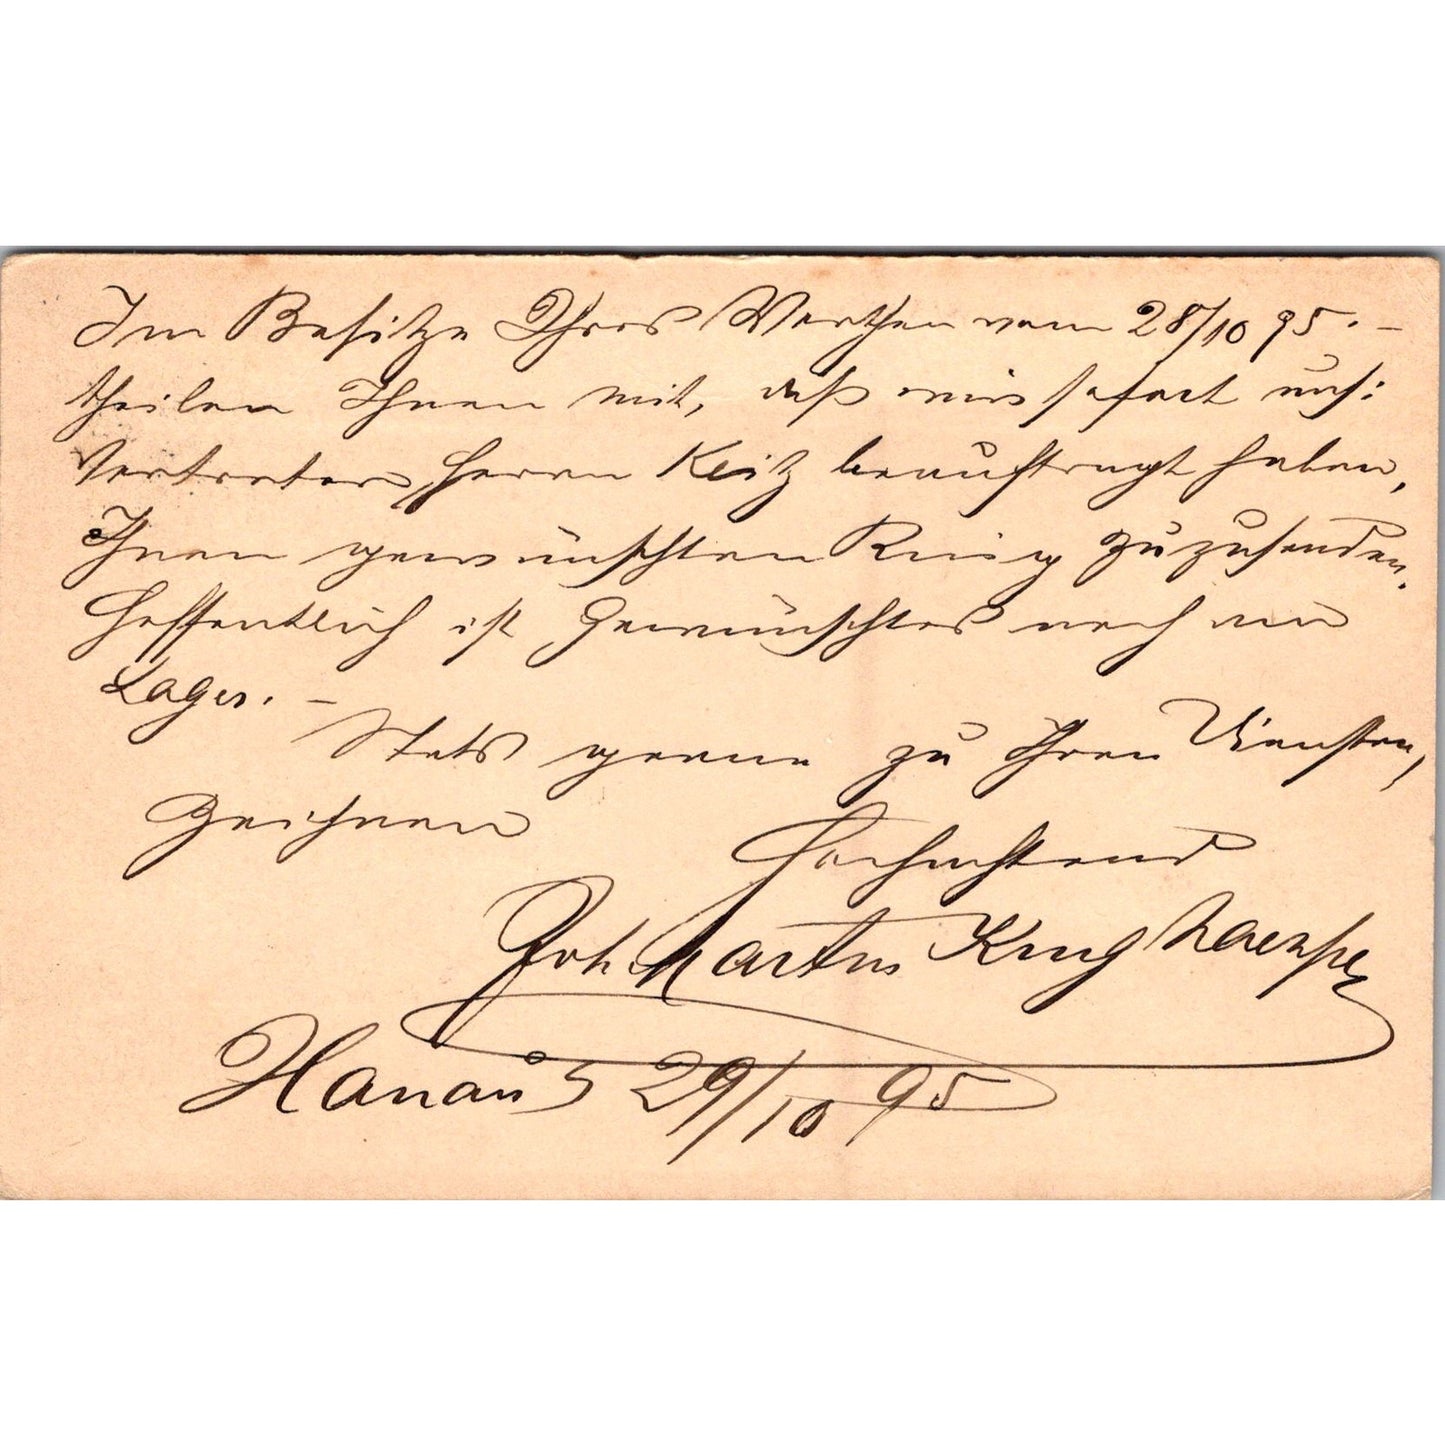 Im Besitze Ihres Werthen vom 28/10 95. –
theilen Ihnen mit, daß wir sofort uns:
Vertreter, Herrn Keitz beauftragt haben,
Ihnen gewünschten Ring zuzusenden.
Hoffentlich ist Gewünschtes noch am
Lager. –
Stets gerne zu Ihren Diensten,
zeichnen
Hochachtend
Joh. Martin Krug
Hanau 29/10 95